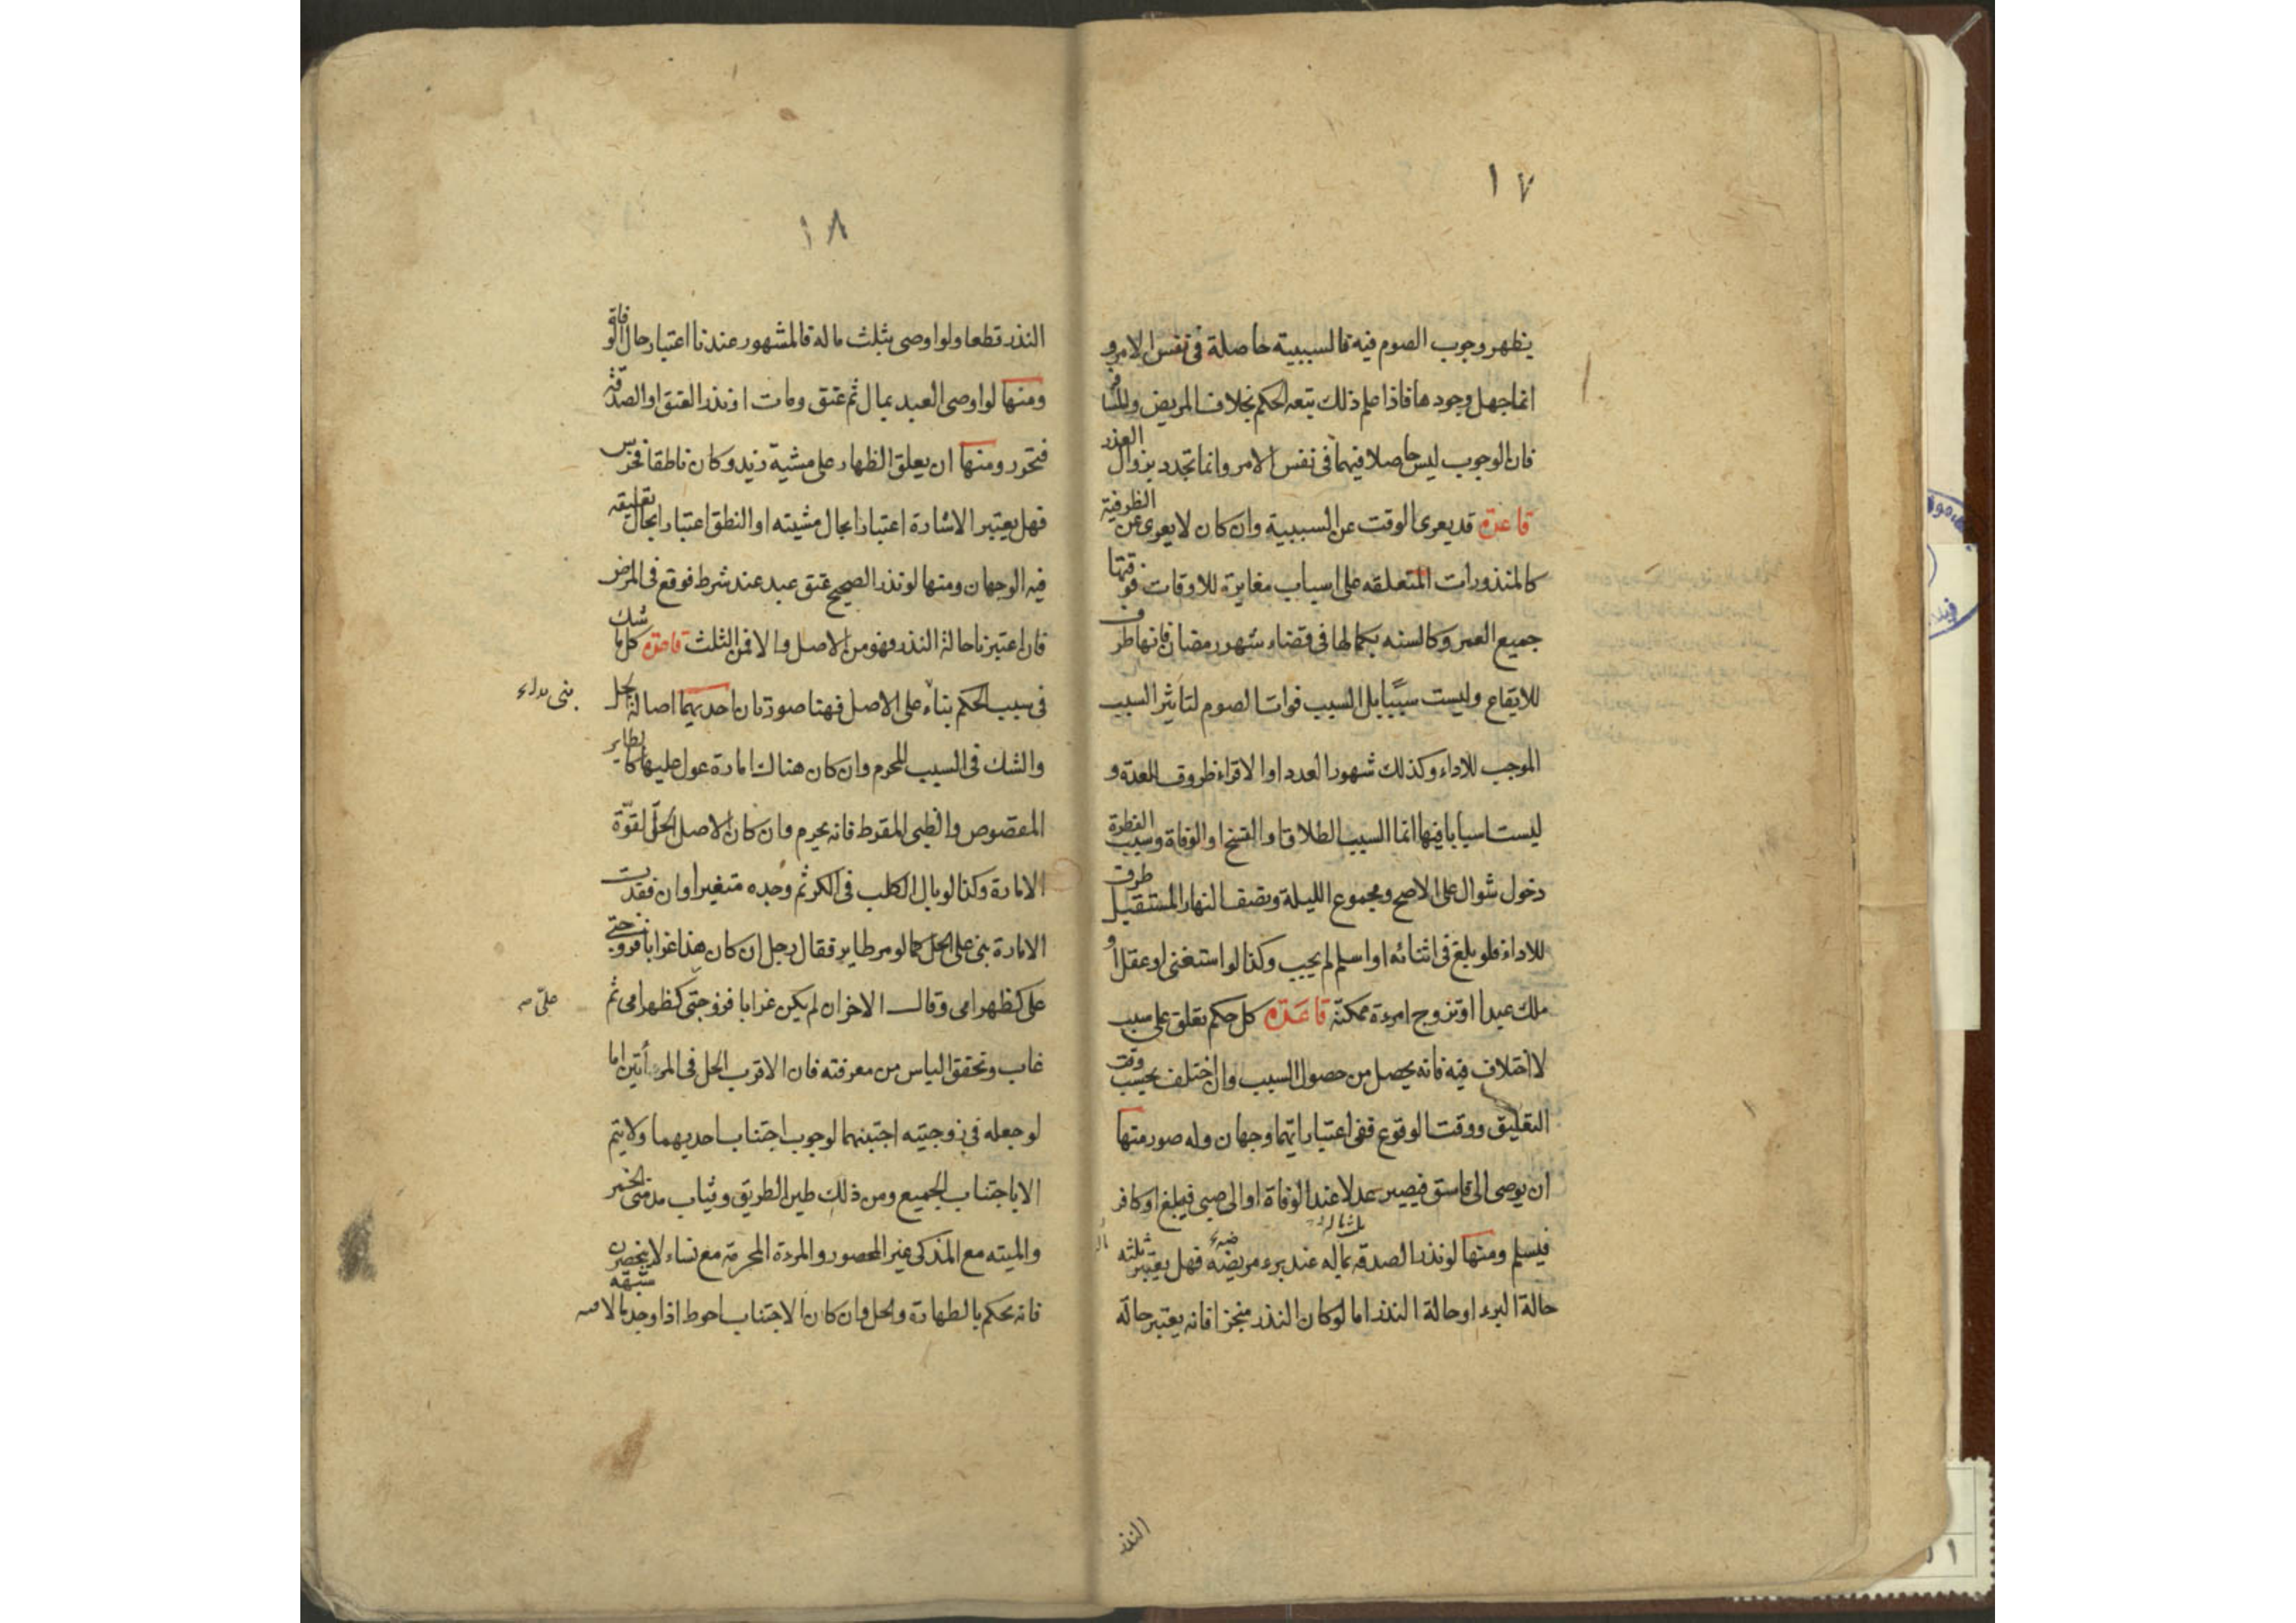 ١٧
يظهر وجوب الصوم فيه فالسببية حاصلة في نفس الامر و
انما جهل وجودها فاذا علم ذلك تبعه الحكم بخلاف المريض والمسافر
فان الوجوب ليس حاصلا فيهما في نفس الامر وانما تجدد بزوال العذر
قاعدة قد يعرى الوقت عن السببية وان كان لا يعرى عن الظرفية
كالمنذورات المتعلقه على اسباب مغايرة للاوقات فوقتها
جميع العمر وكالسنه بكمالها في قضاء شهر رمضان فانها ظرف
للايقاع وليست سببا بل السبب فوات الصوم لتاثير السبب
الموجب للاداء وكذلك شهور العدد او الاقراء ظروف للعدة و
ليست اسبابا فيها انما السبب الطلاق او الفسخ او الوفاة وسبب الفطرة
دخول شوال على الاصح ومجموع الليلة ونصف النهار المستقبل ظرف
للاداء فلو بلغ في اثنائه او اسلم لم يجب وكذا لو استغنى او عقل او
ملك عبدا او تزوج امرءة ممكنة قاعدة كل حكم تعلق على سبب
لا اختلاف فيه فانه يحصل من حصول السبب وان اختلف بحسب وقت
التعليق ووقت الوقوع ففي اعتبار ايهما وجهان وله صور منها
ان يوصى الى فاسق فيصير عدلا عند الوفاة او الى صبي فيبلغ او كافر
فيسلم ومنها لو نذر الصدقه بماله عند برء مريضه فهل يعتبر ثلثه
حالة البرء او حالة النذر اما لو كان النذر منجزا فانه يعتبر حالة
النذر
١٨
النذر قطعا ولو اوصى بثلث ماله فالمشهور عندنا اعتبار حال الوفاة
ومنها لو اوصى العبد بمال ثم عتق ومات او نذر العتق او الصدقة
فتحرر ومنها ان يعلق الظهار على مشية زيد وكان ناطقا فخرس
فهل يعتبر الاشارة اعتبارا بحال مشيته او النطق اعتبارا بحال تعليقه
فيه الوجهان ومنها لو نذر الصحيح عتق عبد عند شرط فوقع في المرض
فان اعتبرنا حالة النذر فهو من الاصل والا فمن الثلث قاعدة كل ما شك
في سبب الحكم بناء على الاصل فهنا صورتان احديهما اصالة الحل
والشك في السبب المحرم وان كان هناك امارة عول عليها كالطاير
المقصوص والظبي المقرط فانه يحرم وان كان الاصل الحل لقوّة
الامارة وكذا لو بال الكلب في الكر ثم وجده متغيرا وان فقدت
الامارة بنى على الحل كما لو مر طاير فقال رجل ان كان هذا غرابا فزوجتي
على كظهر امى وقال الاخر ان لم يكن غرابا فزوجتى كظهر امى ثم
غاب وتحقق الياس من معرفته فان الاقرب الحل في المرأتين اما
لو جعله في زوجتيه اجتنبهما لوجوب اجتناب احديهما ولا يتم
الا باجتناب الجميع ومن ذلك طين الطريق وثياب مدمنى الخمر
والميته مع المذكى غير المحصور والمرءة المحرمة مع نساء لا ينحصرن
فانه يحكم بالطهارة والحل وان كان الاجتناب احوط اذا وجد ما لا شبهه